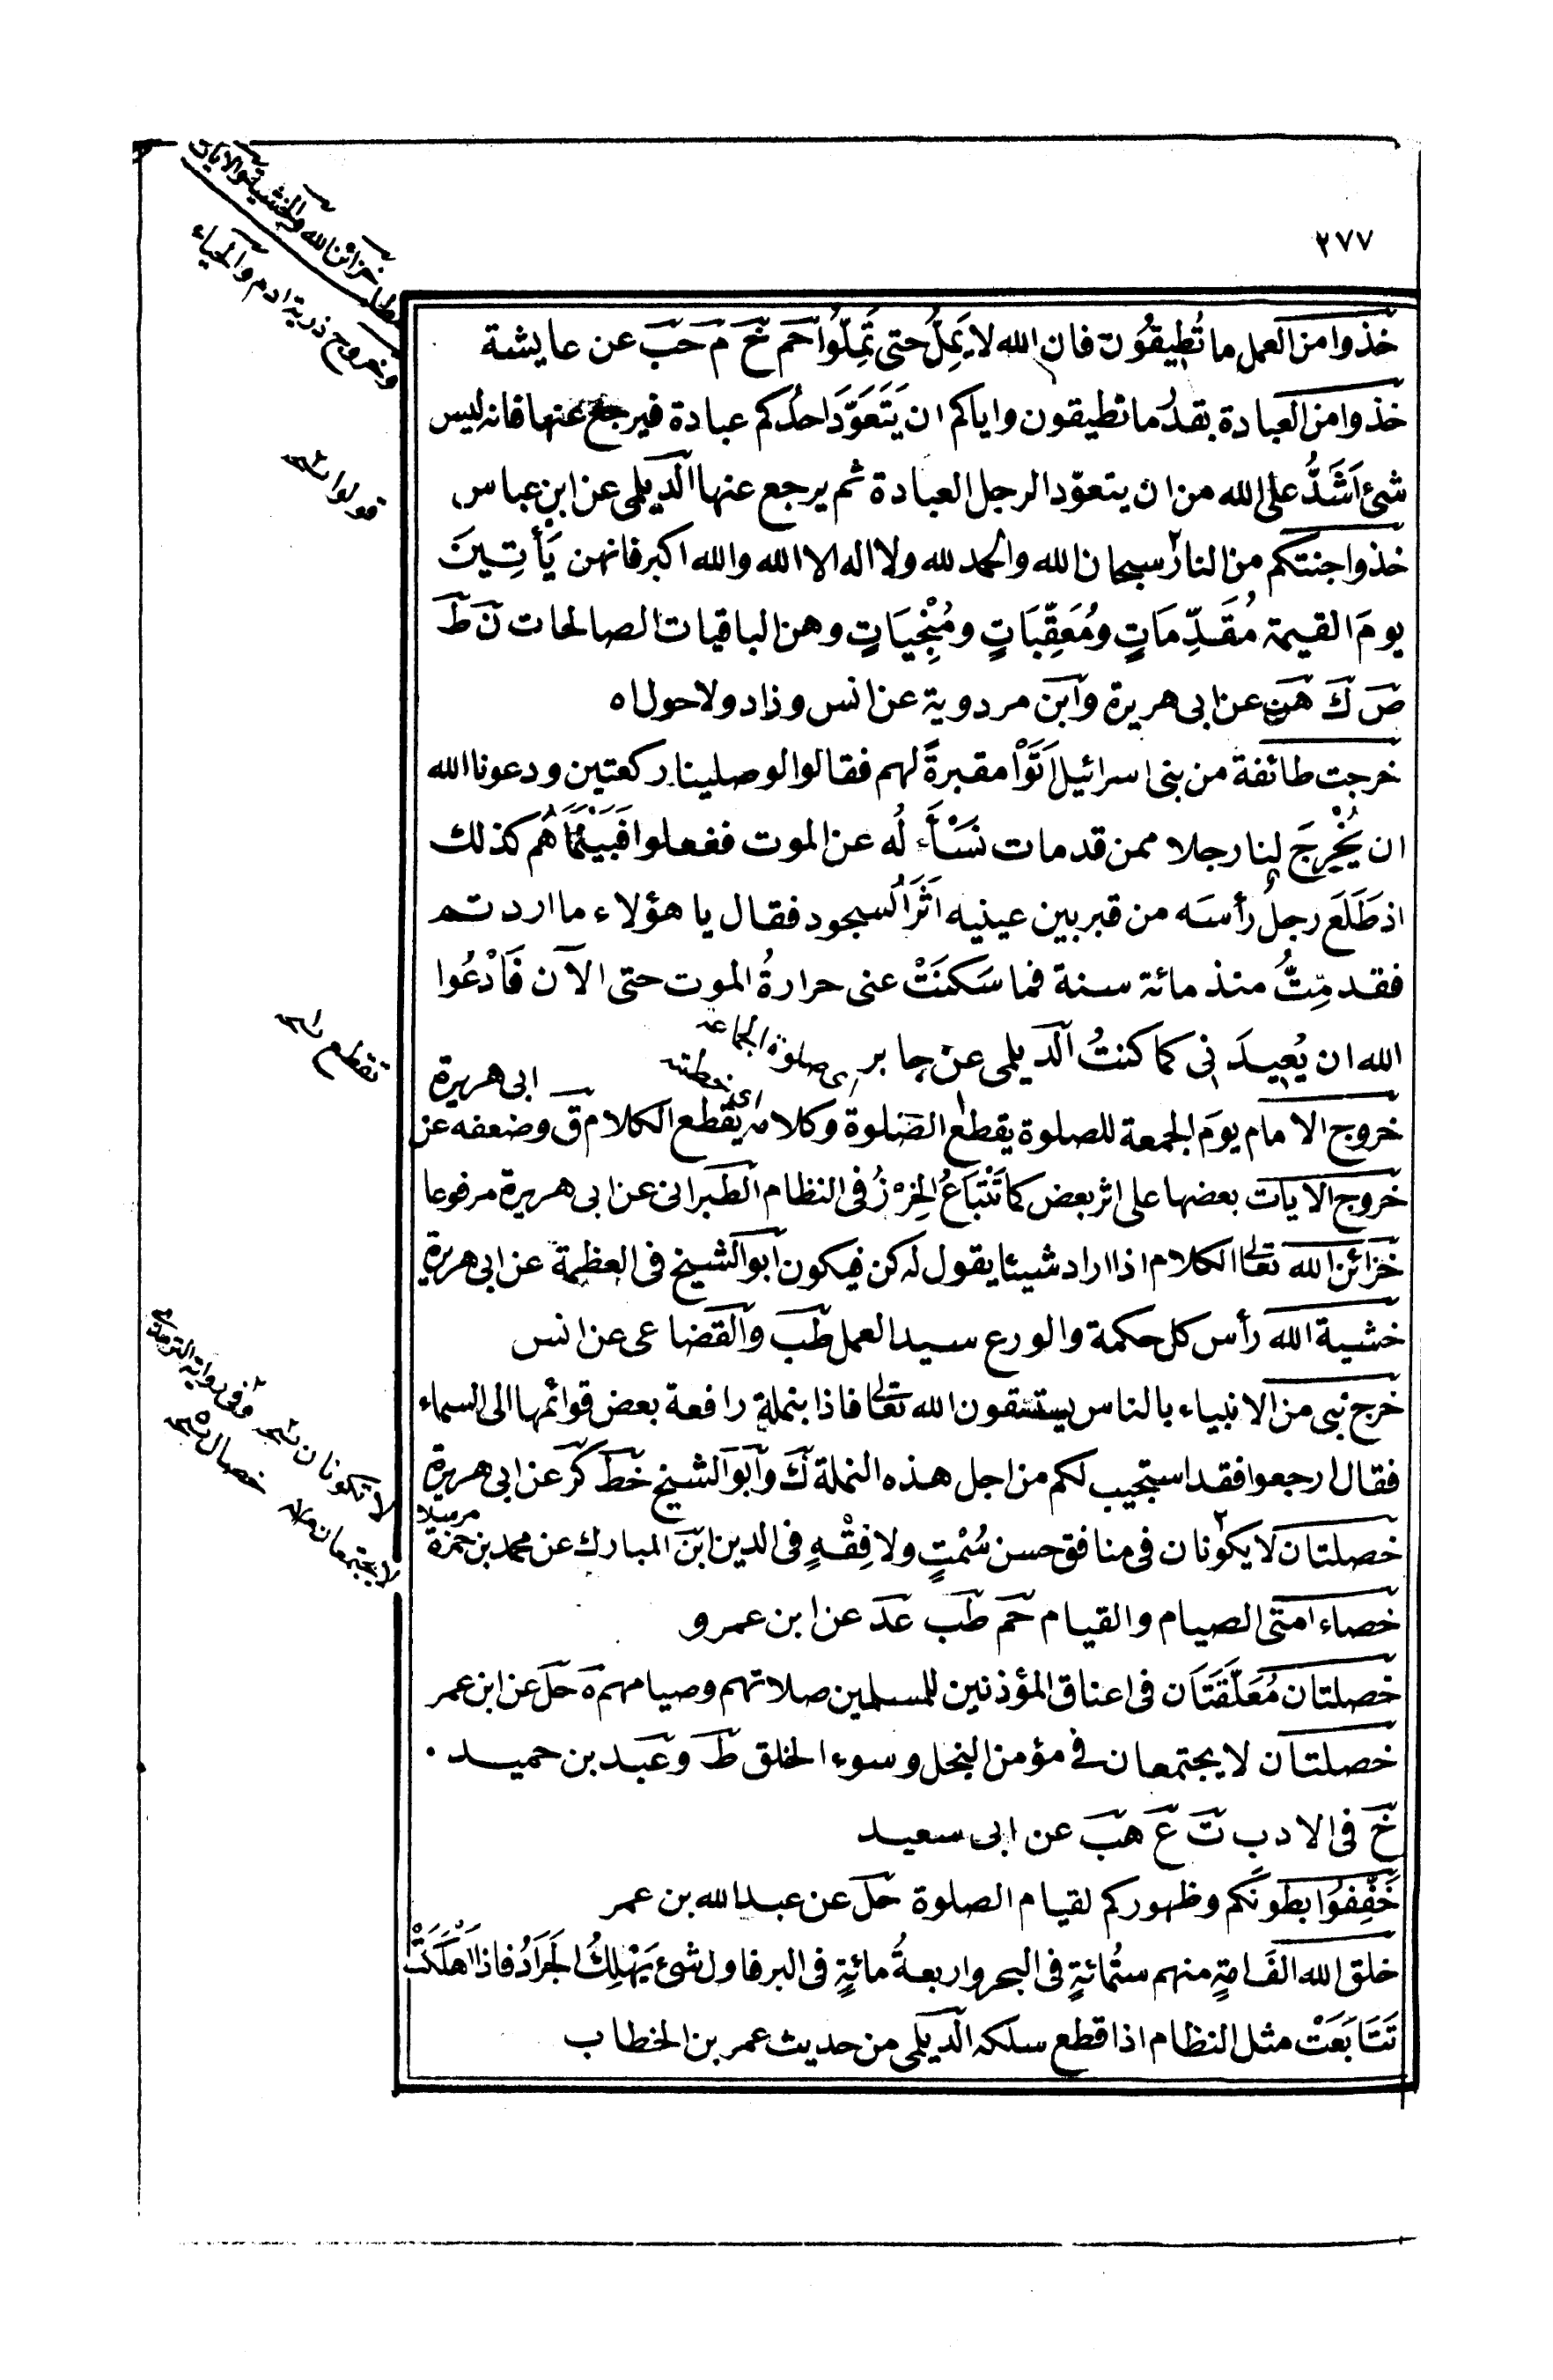 ٢٧٧
مط خزائن الله والخشية والآيات
وخروج ذرية ادم والحياء
خذوا من العمل ما تُطِيقُون فان الله لا يَمِلُّ حتى تَمِلُّوا حم خ م حب عن عايشة
خذوا من العبادة بقدر ما تطيقون واياكم ان يَتَعَوَّدَ احدكم عبادة فيرجع عنها فانه ليس
شئ اَشَدُّ على الله من ان يتعوّد الرجل العبادة ثم يرجع عنها الديلمى عن ابن عباس
قولوا نسخه
خذوا جنتكم من النار سبحان الله والحمد لله ولا اله الا الله والله اكبر فانهن يَأْتِينَ
يومَ القيمة مُقَدِّمَاتٍ ومُعَقِّبَاتٍ ومُنْجِيَاتٍ وهن الباقيات الصالحات ن ط
ص ك هن عن ابى هريرة وابن مردوية عن انس وزاد ولا حول اه
خرجت طائفة من بنى اسرائيل اَتَوْا مقبرةً لهم فقالوا لو صلينا ركعتين ودعونا الله
ان يُخْرِجَ لنا رجلا ممن قد مات نَسْأَلُه عن الموت ففعلوا فَبَيْنَمَا هُم كذلك
اذ طَلَعَ رجلٌ رأسَه من قبر بين عينيه اَثَرُ السجود فقال يا هؤلاء ما اردتم
فقد مِتُّ منذ مائة سنة فما سَكَنَتْ عنى حرارةُ الموت حتى الآن فَادْعُوا
الله ان يُعِيدَنِى كما كنتُ الديلمى عن جابر
اى صلوة الجماعة
اى خطبته
ابى هريرة
تقطع نسخه
خروج الامام يومَ الجمعة للصلوة يقطع الصلوة وكلامه يقطع الكلام ق وضعفه عن
خروج الايات بعضها على اثر بعض كما تَتَتَابَعُ الخِرْزُ فى النظام الطبرانى عن ابى هريرة مرفوعا
خزائن الله تعالى الكلام اذا اراد شيئا يقول له كن فيكون ابو الشيخ فى العظمة عن ابى هريرة
خشية الله رأس كل حكمة والورع سيد العمل طب والقضاعى عن انس
خرج نبى من الانبياء بالناس يستسقون الله تعالى فاذا بنملةٍ رافعة بعض قوائمها الى السماء
فقال ارجعوا فقد استجيب لكم من اجل هذه النملة ك وابو الشيخ خط كر عن ابى هريرة
لا تكونان نسخه وفى رواية الترمذى
لا يجتمعان خصال نسخه
خصلتان لا يكونان فى منافق حسن سُمْتٍ ولا فِقْهٍ فى الدين ابن المبارك عن محمد بن حمزة مرسلا
خصاء امتى الصيام والقيام حم طب عد عن ابن عمرو
خصلتان مُعَلَّقَتَان فى اعناق المؤذنين للمسلمين صلاتهم وصيامهم ه حل عن ابن عمر
خصلتان لا يجتمعان فى مؤمن البخل وسوء الخلق ط وعبد بن حميد
خ فى الادب ت ع هب عن ابى سعيد
خَفِّفُوا بطونَكم وظهوركم لقيام الصلوة حل عن عبد الله بن عمر
خلق الله الفَ امةٍ منهم ستُّمائةٍ فى البحر واربعةُ مائةٍ فى البر فاول شئ يَهْلِكُ الجَرَادُ فاذا اَهْلَكَتْ
تَتَابَعَتْ مثل النظام اذا قطع سلكه الديلمى من حديث عمر بن الخطاب